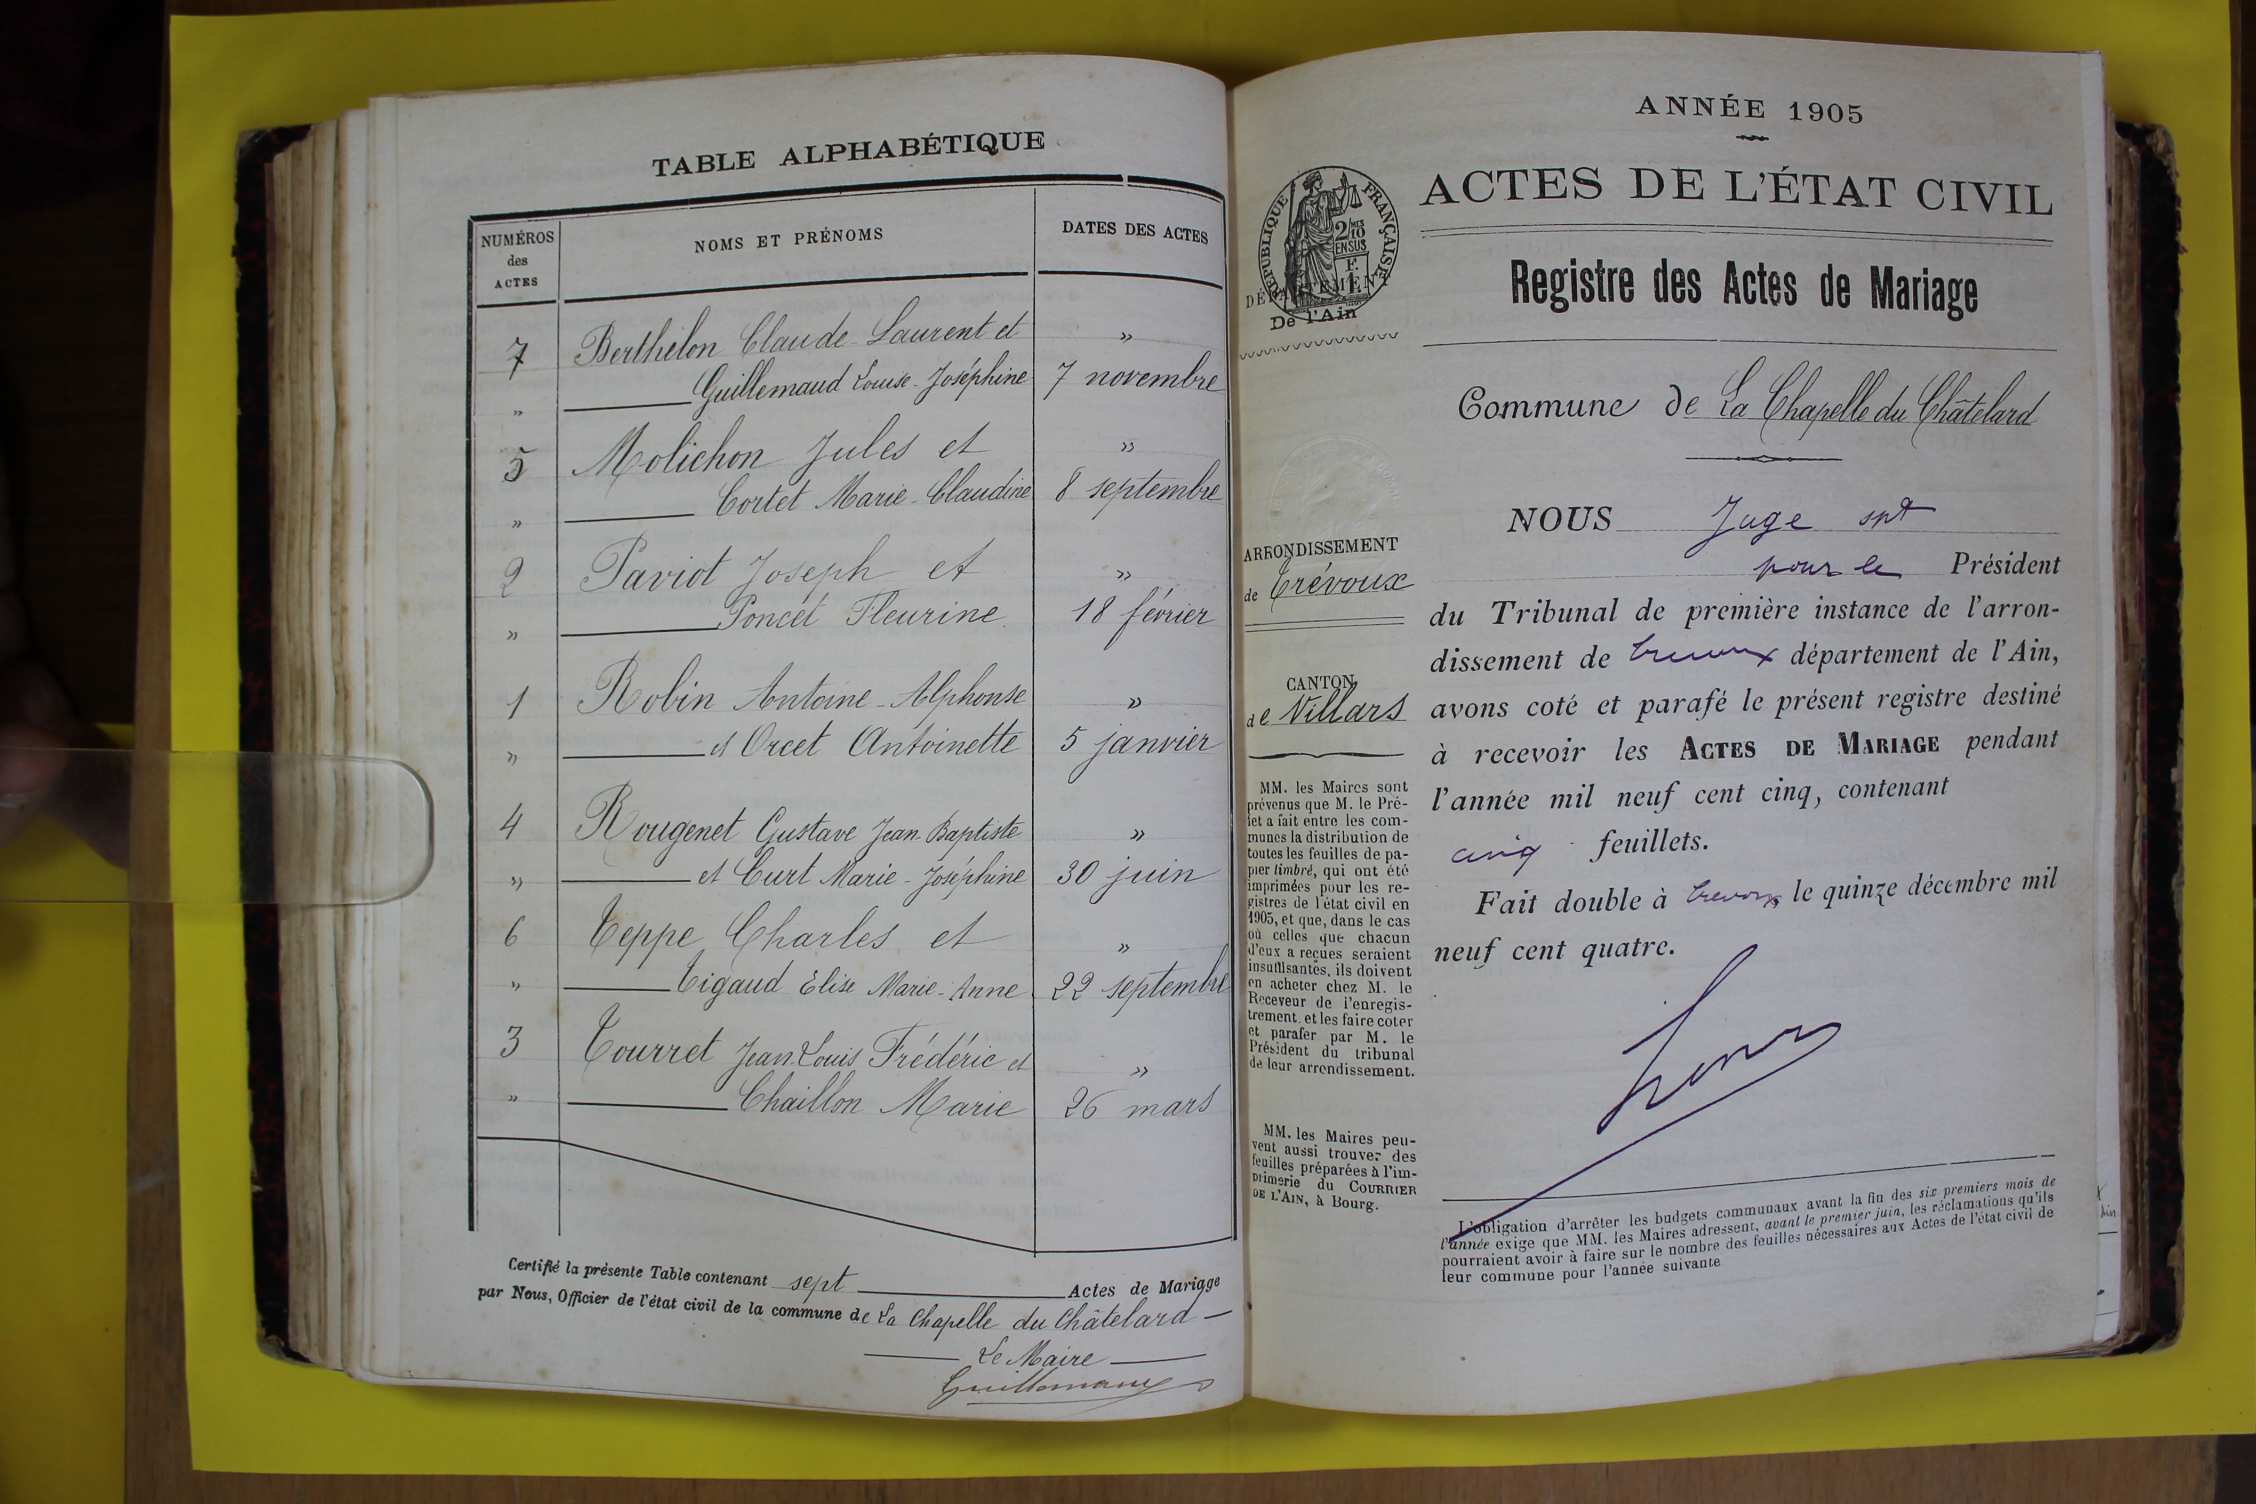 TABLE ALPHABÉTIQUE
NUMÉROS des ACTES
NOMS ET PRÉNOMS
DATES DES ACTES
7 Berthelon Claude-Laurent et »
» Guillemaud Louise-Joséphine 7 novembre
5 Molichon Jules et »
» Cortet Marie-Claudine 8 septembre
2 Paviot Joseph et »
» Poncet Fleurine 18 février
1 Robin Antoine-Alphonse »
» et Orcet Antoinette 5 janvier
4 Rougenet Gustave Jean-Baptiste »
» et Curt Marie-Joséphine 30 juin
6 Teppe Charles et »
» Tigaud Elise Marie-Anne 22 septembre
3 Tourret Jean-Louis Frédéric et »
» Chaillon Marie 26 mars
Certifié la présente Table contenant sept Actes de Mariage
par Nous, Officier de l'état civil de la commune de La Chapelle du Châtelard
Le Maire
Guillemaud
ANNÉE 1905
ACTES DE L'ÉTAT CIVIL
RÉPUBLIQUE FRANÇAISE
2/MES 10
EN SUS
DÉPARTEMENT
De l'Ain
Registre des Actes de Mariage
Commune de La Chapelle du Châtelard
ARRONDISSEMENT
de Trévoux
CANTON
de Villars
MM. les Maires sont
prévenus que M. le Pré-
fet a fait entre les com-
munes la distribution de
toutes les feuilles de pa-
pier timbré, qui ont été
imprimées pour les re-
gistres de l'état civil en
1905, et que, dans le cas
où celles que chacun
d'eux a reçues seraient
insuffisantes, ils doivent
en acheter chez M. le
Receveur de l'enregis-
trement et les faire coter
et parafer par M. le
Président du tribunal
de leur arrondissement.
MM. les Maires peu-
vent aussi trouver des
feuilles préparées à l'im-
primerie du COURRIER
DE L'AIN, à Bourg.
NOUS Juge spt
pour le Président
du Tribunal de première instance de l'arron-
dissement de Trevoux département de l'Ain,
avons coté et parafé le présent registre destiné
à recevoir les ACTES DE MARIAGE pendant
l'année mil neuf cent cinq, contenant
cinq feuillets.
Fait double à Trevoux le quinze décembre mil
neuf cent quatre.
L'obligation d'arrêter les budgets communaux avant la fin des six premiers mois de
l'année exige que MM. les Maires adressent, avant le premier juin, les réclamations qu'ils
pourraient avoir à faire sur le nombre des feuilles nécessaires aux Actes de l'état civil de
leur commune pour l'année suivante